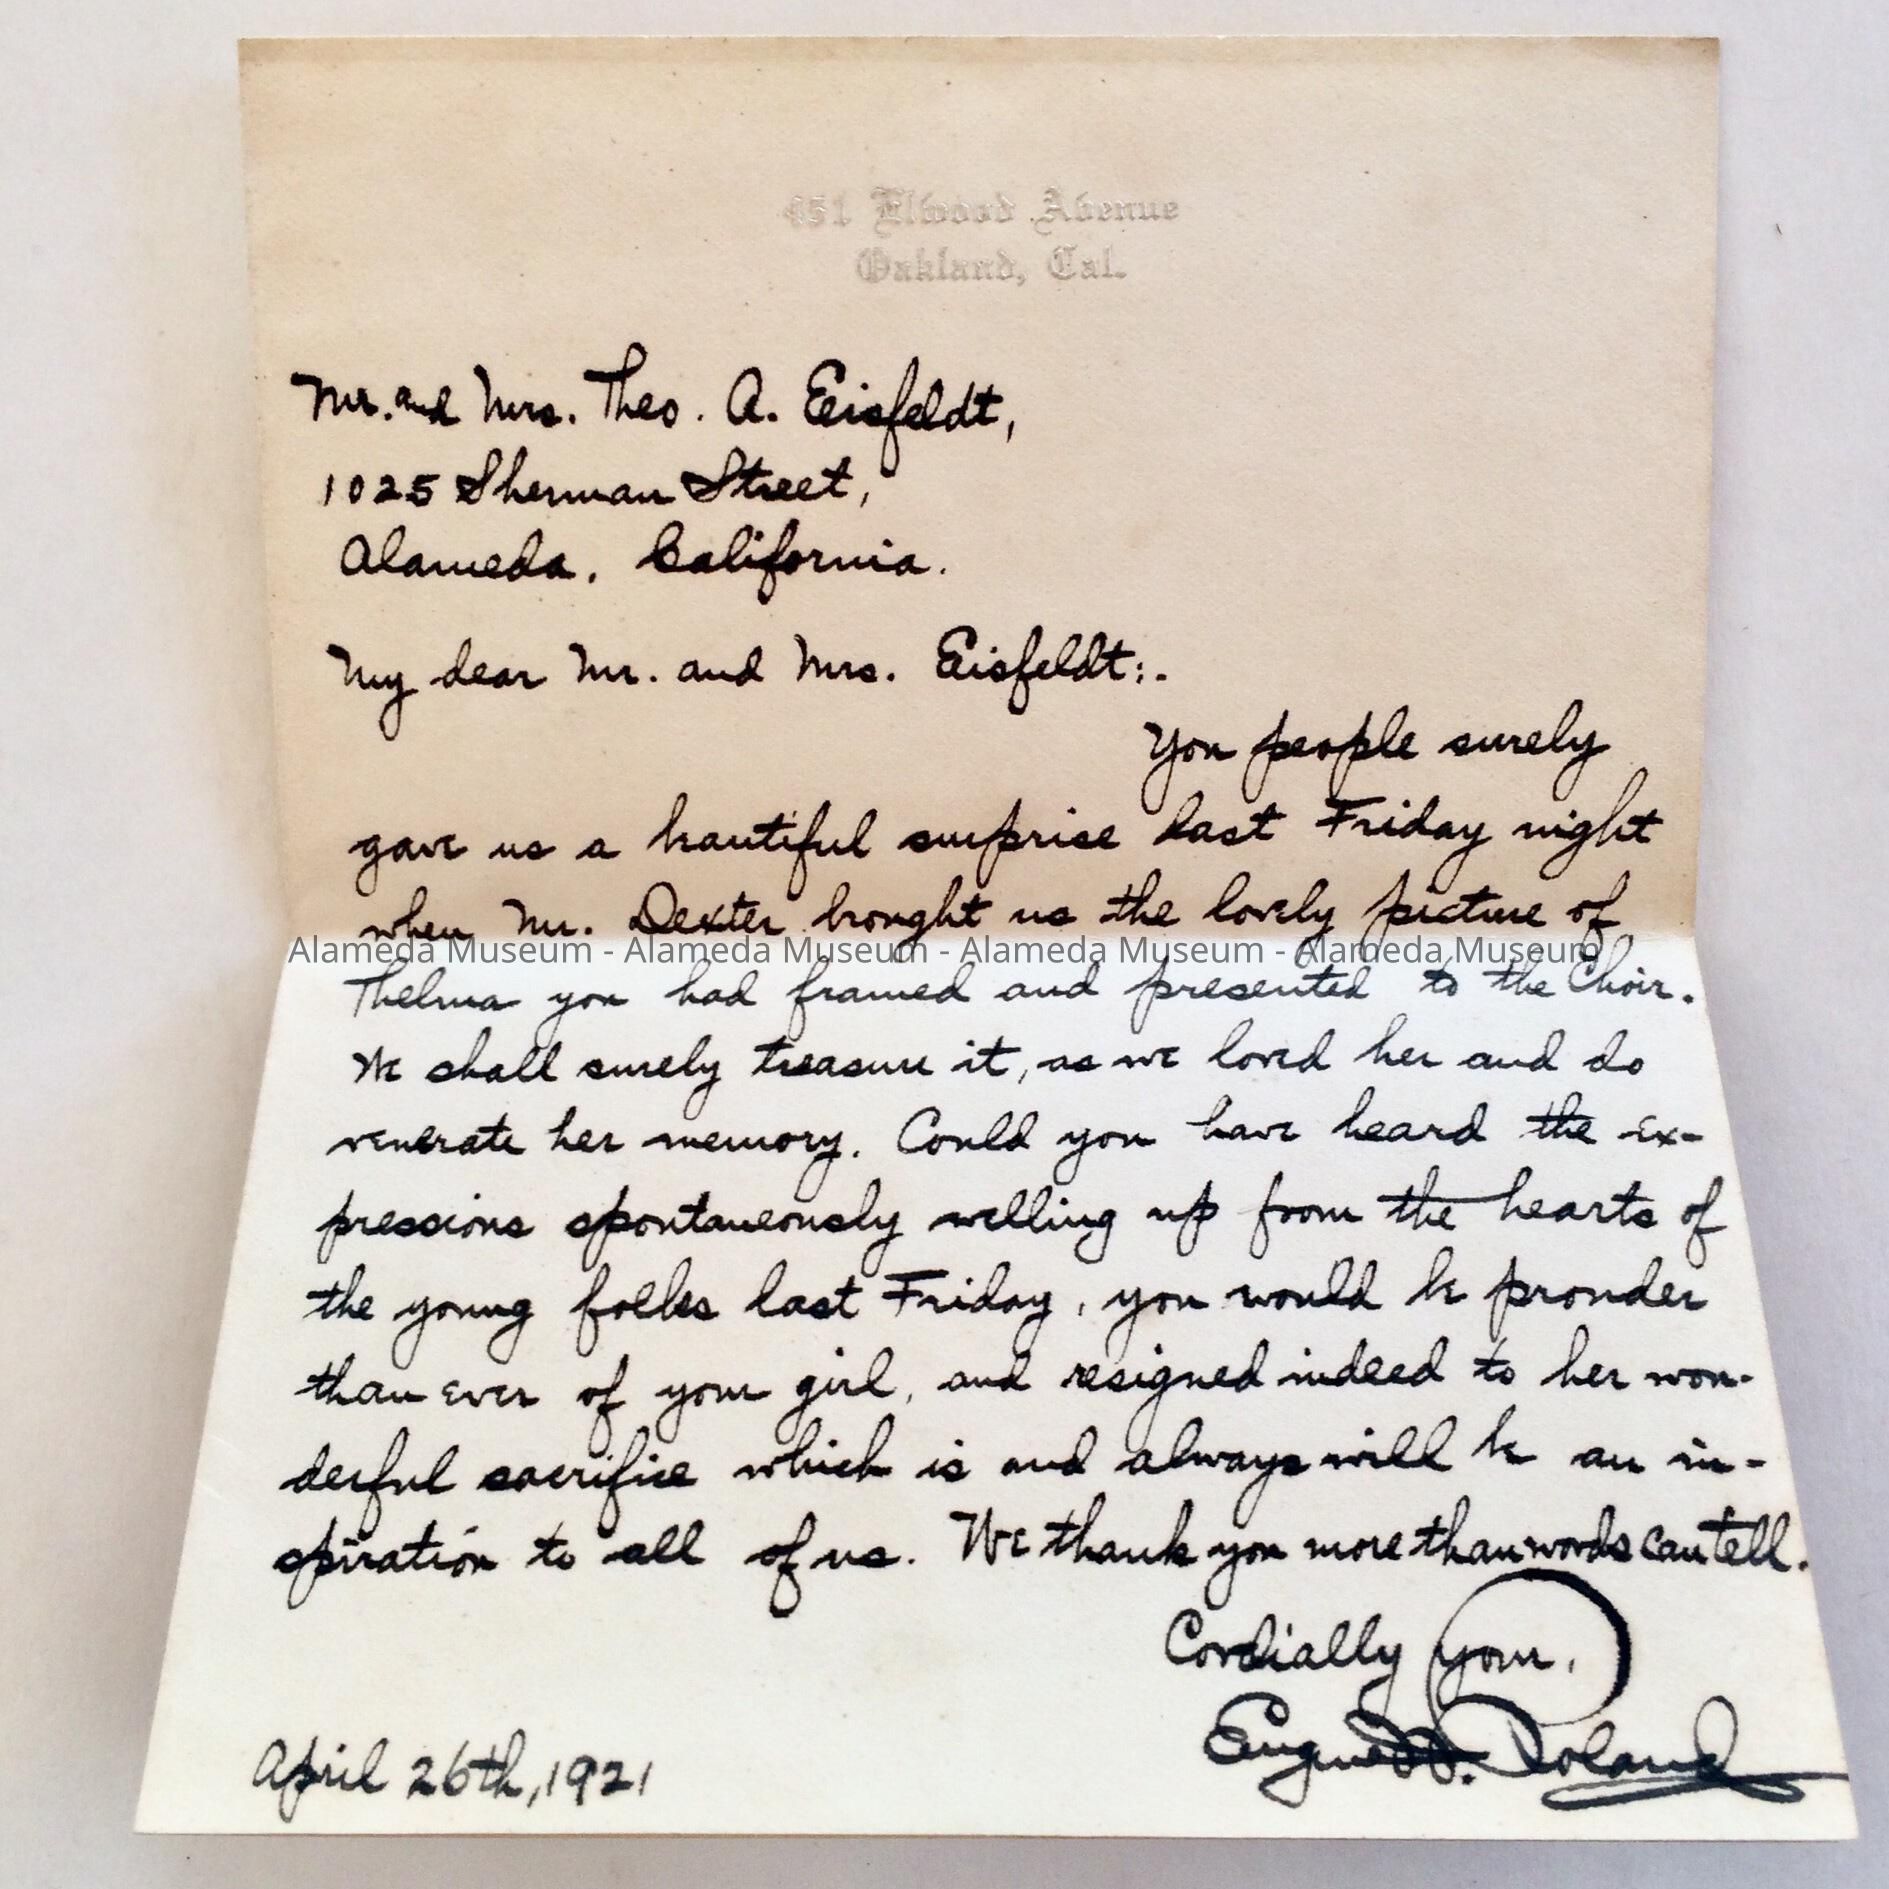 451 Elwood Avenue
Oakland, Cal.
Mr. and Mrs. Theo. A. Eisfeldt,
1025 Sherman Street,
Alameda, California.
My dear Mr. and Mrs. Eisfeldt:-
You people surely
gave us a beautiful surprise last Friday night
when Mr. Dexter brought us the lovely picture of
Alameda Museum - Alameda Museum - Alameda Museum - Alameda Museum
Thelma you had framed and presented to the Choir.
We shall surely treasure it, as we loved her and do
venerate her memory. Could you have heard the ex-
pressions spontaneously welling up from the hearts of
the young folks last Friday, you would be prouder
than ever of your girl, and resigned indeed to her won-
derful sacrifice which is and always will be an in-
spiration to all of us. We thank you more than words can tell.
Cordially your,
Eugene W. Roland
April 26th, 1921